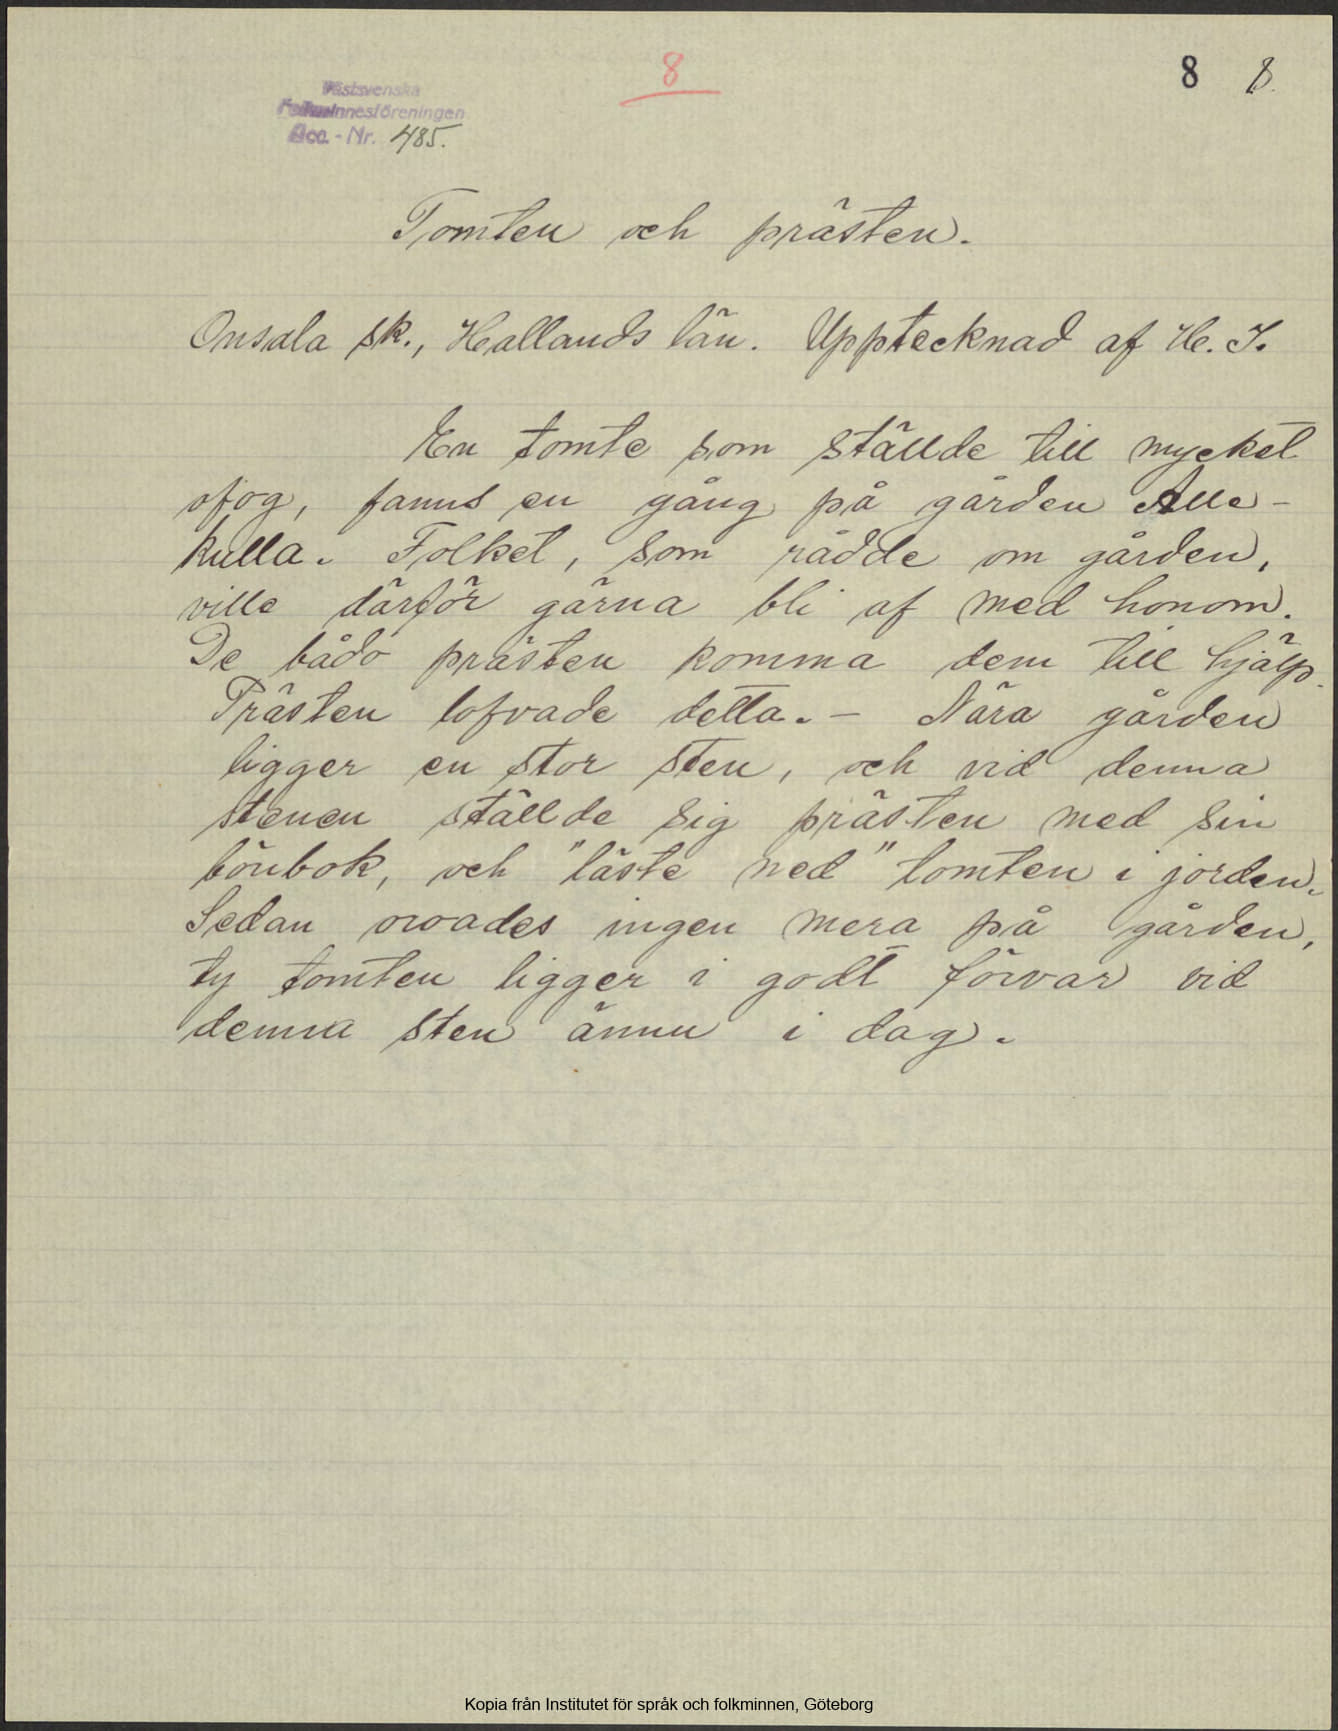 8
8 8.
Västsvenska
Folkminnesföreningen
Acc. - Nr. 485.
Tomten och prästen.
Onsala sk., Hallands län. Upptecknad af H. J.
En tomte som ställde till mycket
ofog, fanns en gång på gården Alle-
kulla. Folket, som rådde om gården,
ville därför gärna bli af med honom.
De bådo prästen komma dem till hjälp.
Prästen lofvade detta. – Nära gården
ligger en stor sten, och vid denna
stenen ställde sig prästen med sin
bönbok, och "läste ned" tomten i jorden.
Sedan oroades ingen mera på gården,
ty tomten ligger i godt förvar vid
denna sten ännu i dag.
Kopia från Institutet för språk och folkminnen, Göteborg